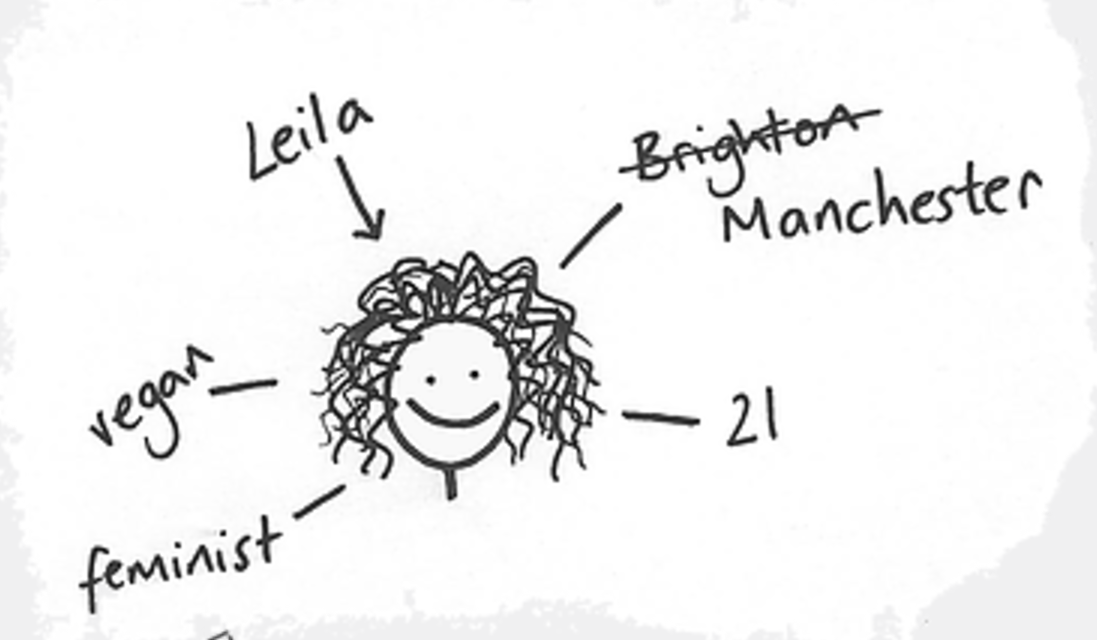 Leila
Brighton
Manchester
vegan
21
feminist